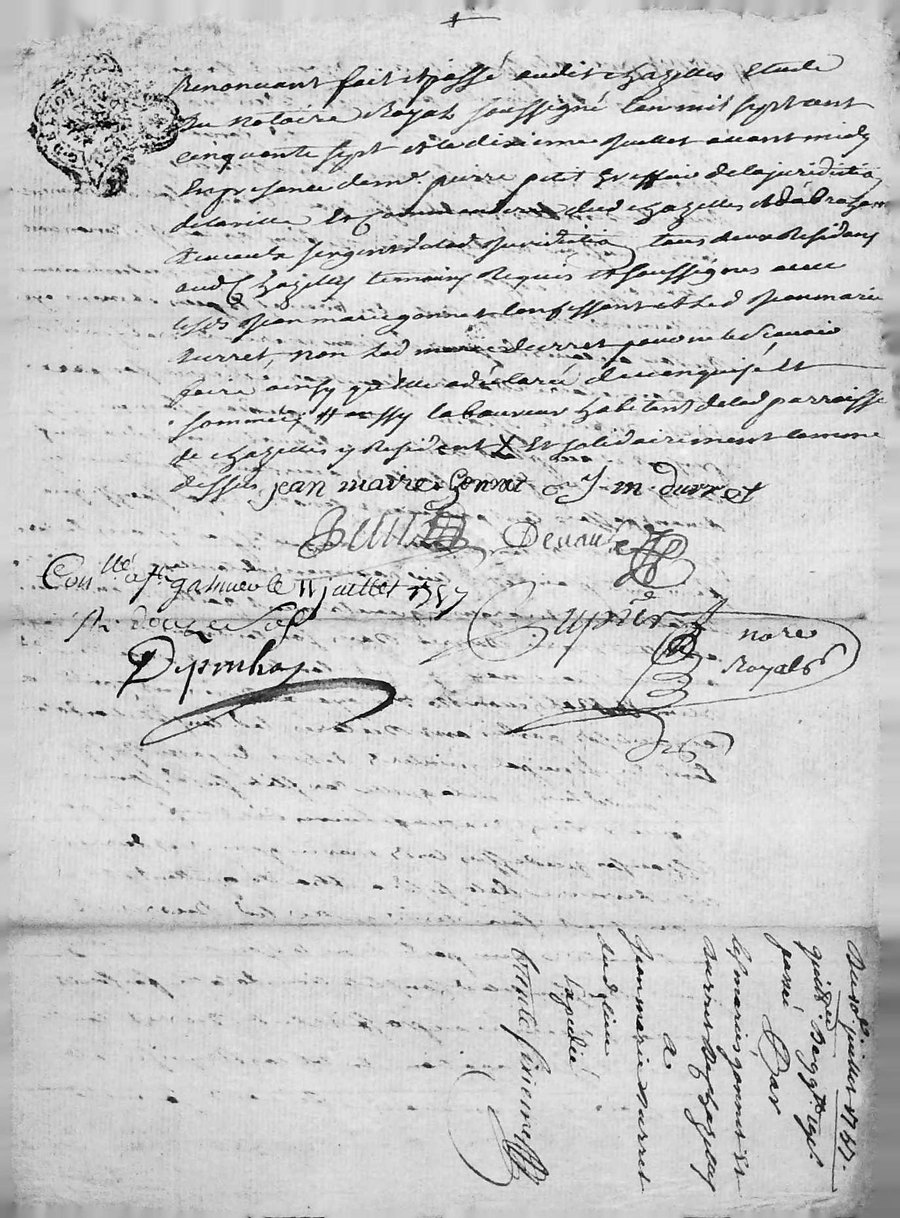 Renoncant fait et passé audit chazelles etude
du notaire Royal soussigné lan mil sept cent
cinquante sept et le dixieme Juillet avant midy
En presence de mr. pierre petit greffier de la juridiction
de la ville et commanderie dud chazelles et d'abraham
sergent de lad Juridiction tous deux Residans
aud chazelles temoins Requis et soussignés avec
lesd Jean marie gonnet Confessant et led Jean marie
durret, non lad marie durret pour ne le scavoir
faire ainsy quelle a déclaré de ce enquise et
sommée, laboureur habitant de lad parroisse
de chazelles y Resident X Et solidairement comme
dessus jean marie Gonnet J. m. durret
Petit Devaux
Con.llé a St. galmier le 11 juillet 1757
R. douze sols
Deponhas
Cuprier no.re Royal
Du 10e juillet 1757.
quitt.ce
passé Par
les mariés gonnet et
durret de chazelles
a
Jean marie durret
dud lieu
Expedié